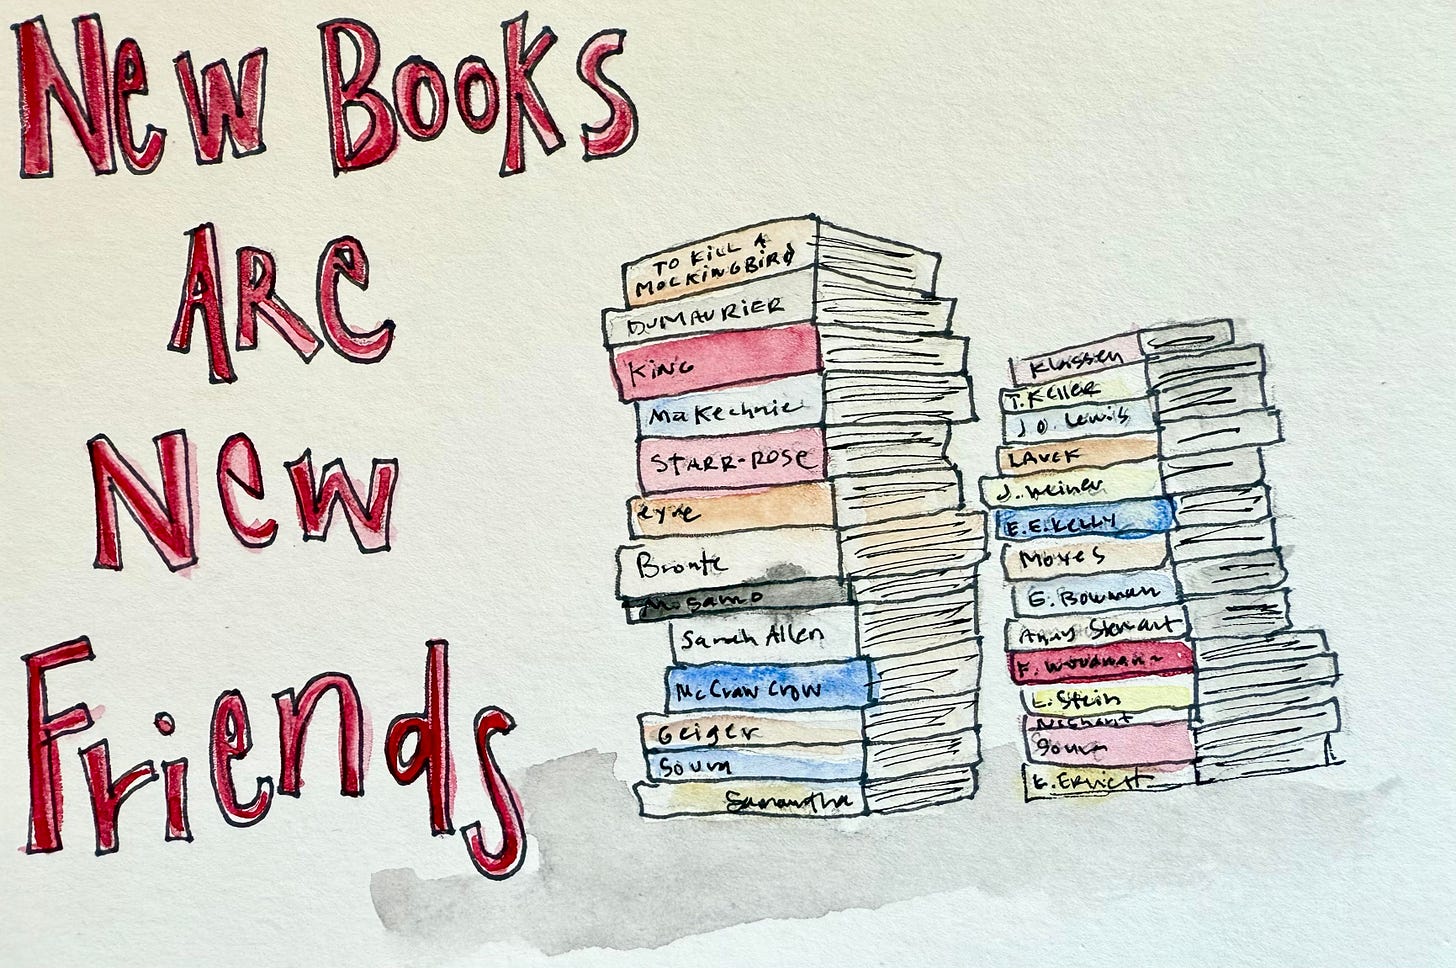 New Books
Are
New
Friends
TO KILL A
MOCKINGBIRD
DUMAURIER
KING
Makechnie
STARR-ROSE
eyre
Bronte
M. Samo
Sarah Allen
McCraw Crow
Geiger
Souva
Samantha
Klassen
T. Keller
J.O. Lewis
LAUCK
J. Weiner
E.E. KELLY
Moyes
E. Bowman
Amy Stewart
F. Woodman
L. Stein
Souva